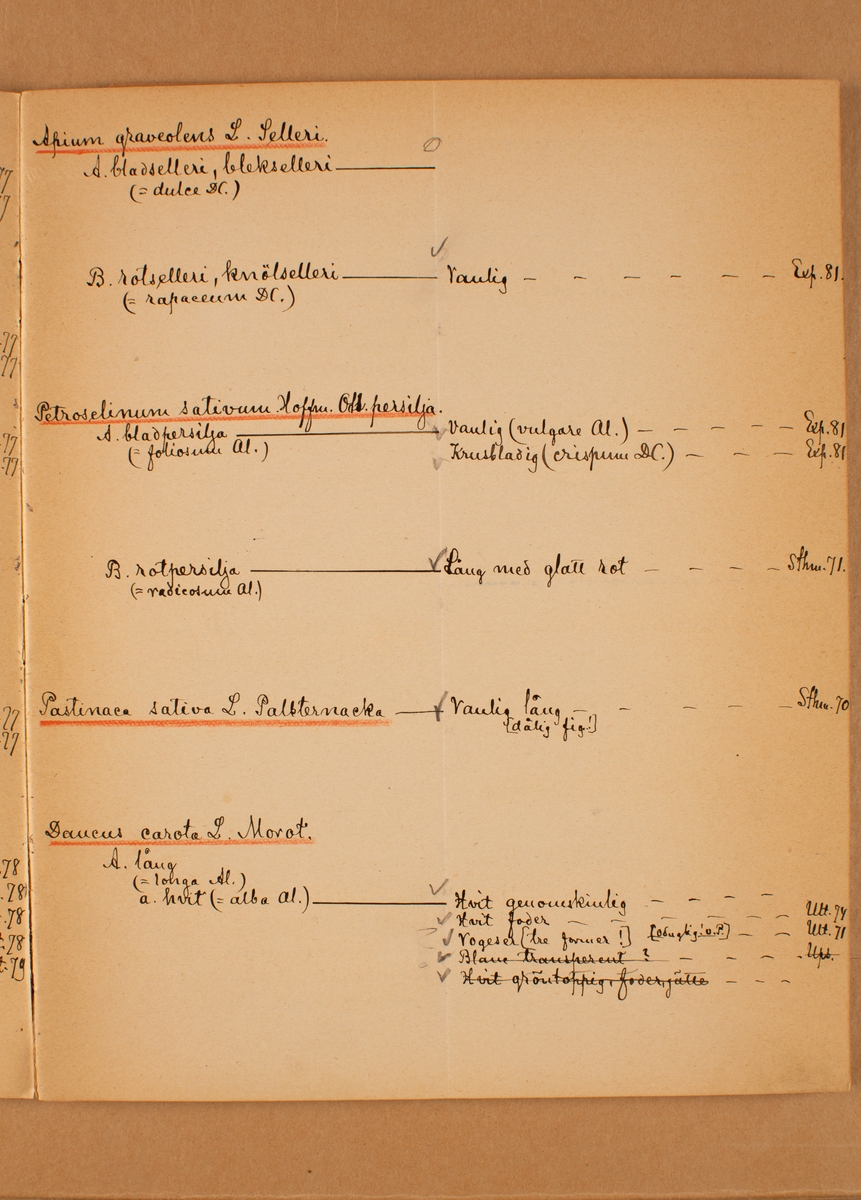 Apium graveolens L. Selleri.
A. bladselleri, blekselleri
(= dulce DC.)
B. rotselleri, knölselleri Vanlig - - - - - - Exp. 81.
(= rapaceum DC.)
Petroselinum sativum Hoffm. persilja.
A. bladpersilja Vanlig (vulgare Al.) - - - - Exp. 81
(= foliosum Al.) Krusbladig (crispum DC.) - - - Exp. 81
B. rotpersilja Lång med glatt rot - - - - Sthm. 71.
(= radicosum Al.)
Pastinaca sativa L. Palsternacka Vanlig lång - - - - - Sthm. 70
[dålig fig.!]
Daucus carota L. Morot.
A. lång
(= longa Al.)
a. hvit (= alba Al.) Hvit genomskinlig - - - -
Hvit foder - - - - - - Utt. 74
Vogeser [tre former!] - - Utt. 71
Blanc transperent ? - - - - Ups.
Hvit gröntoppig, foder, jätte - - -
77
7
-77
77
-77
-77
77
-77
78
.78
-78
.78
t.79